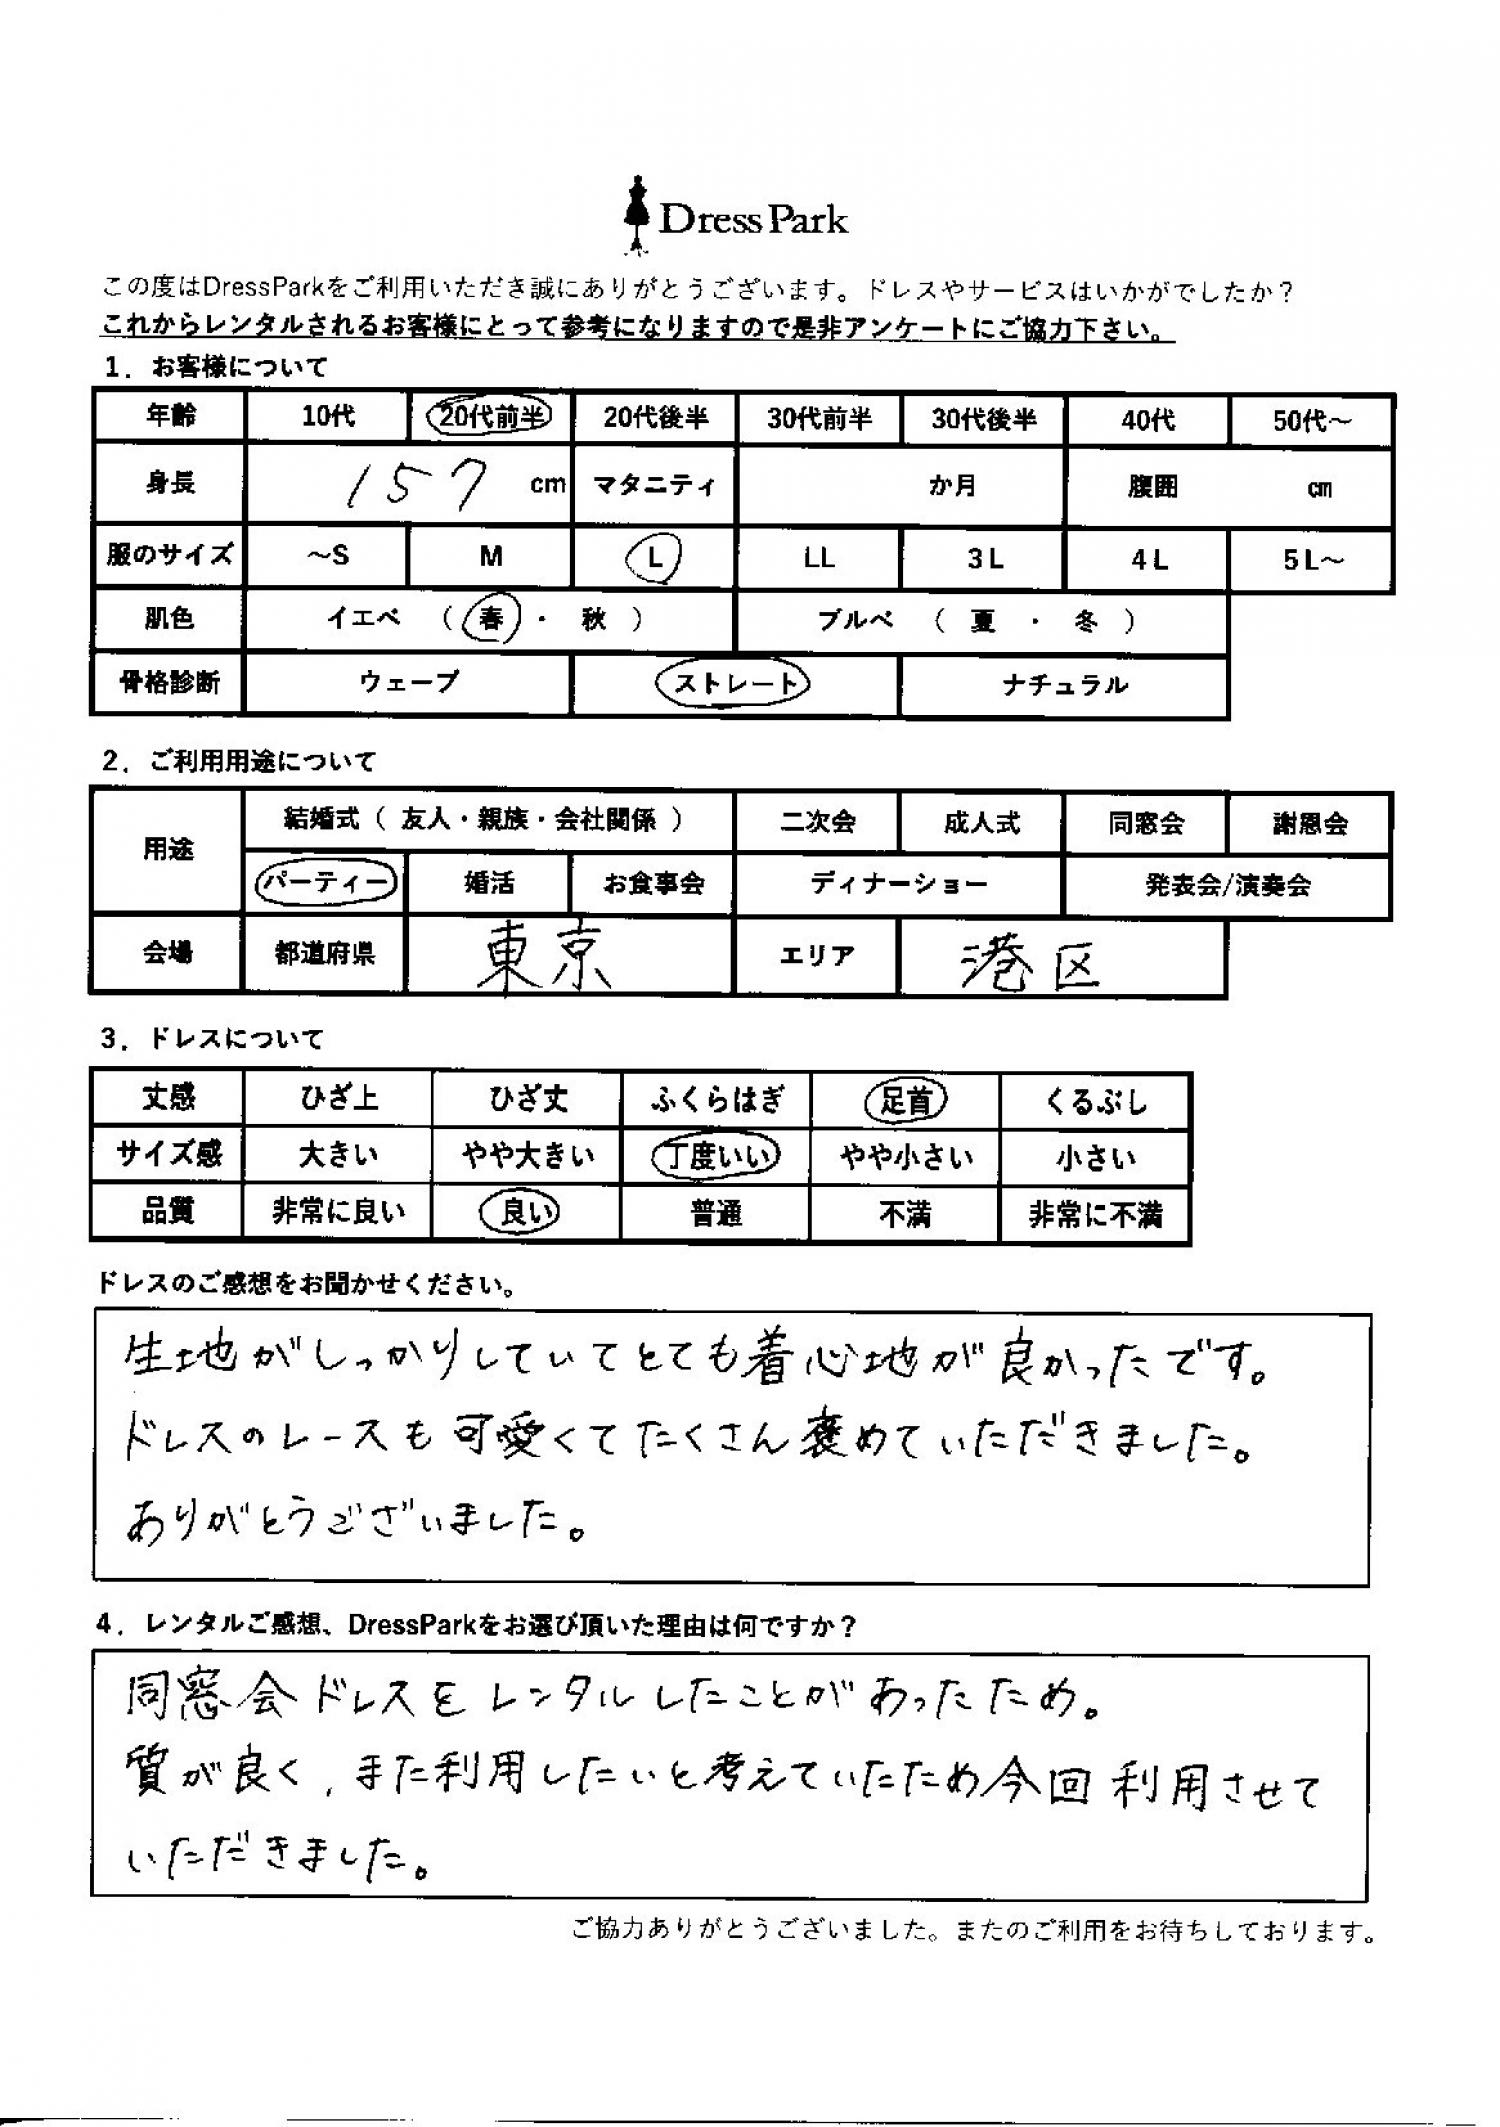 Dress Park
この度はDressParkをご利用いただき誠にありがとうございます。ドレスやサービスはいかがでしたか？
これからレンタルされるお客様にとって参考になりますので是非アンケートにご協力下さい。
1．お客様について
年齢 10代 20代前半 20代後半 30代前半 30代後半 40代 50代～
身長 157 cm マタニティ か月 腹囲 cm
服のサイズ ～S M L LL 3L 4L 5L～
肌色 イエベ （ 春 ・ 秋 ） ブルベ （ 夏 ・ 冬 ）
骨格診断 ウェーブ ストレート ナチュラル
2．ご利用用途について
用途 結婚式（ 友人・親族・会社関係 ） 二次会 成人式 同窓会 謝恩会
パーティー 婚活 お食事会 ディナーショー 発表会/演奏会
会場 都道府県 東京 エリア 港区
3．ドレスについて
丈感 ひざ上 ひざ丈 ふくらはぎ 足首 くるぶし
サイズ感 大きい やや大きい 丁度いい やや小さい 小さい
品質 非常に良い 良い 普通 不満 非常に不満
ドレスのご感想をお聞かせください。
生地がしっかりしていてとても着心地が良かったです。
ドレスのレースも可愛くてたくさん褒めていただきました。
ありがとうございました。
4．レンタルご感想、DressParkをお選び頂いた理由は何ですか？
同窓会ドレスをレンタルしたことがあったため。
質が良く、また利用したいと考えていたため今回利用させて
いただきました。
ご協力ありがとうございました。またのご利用をお待ちしております。